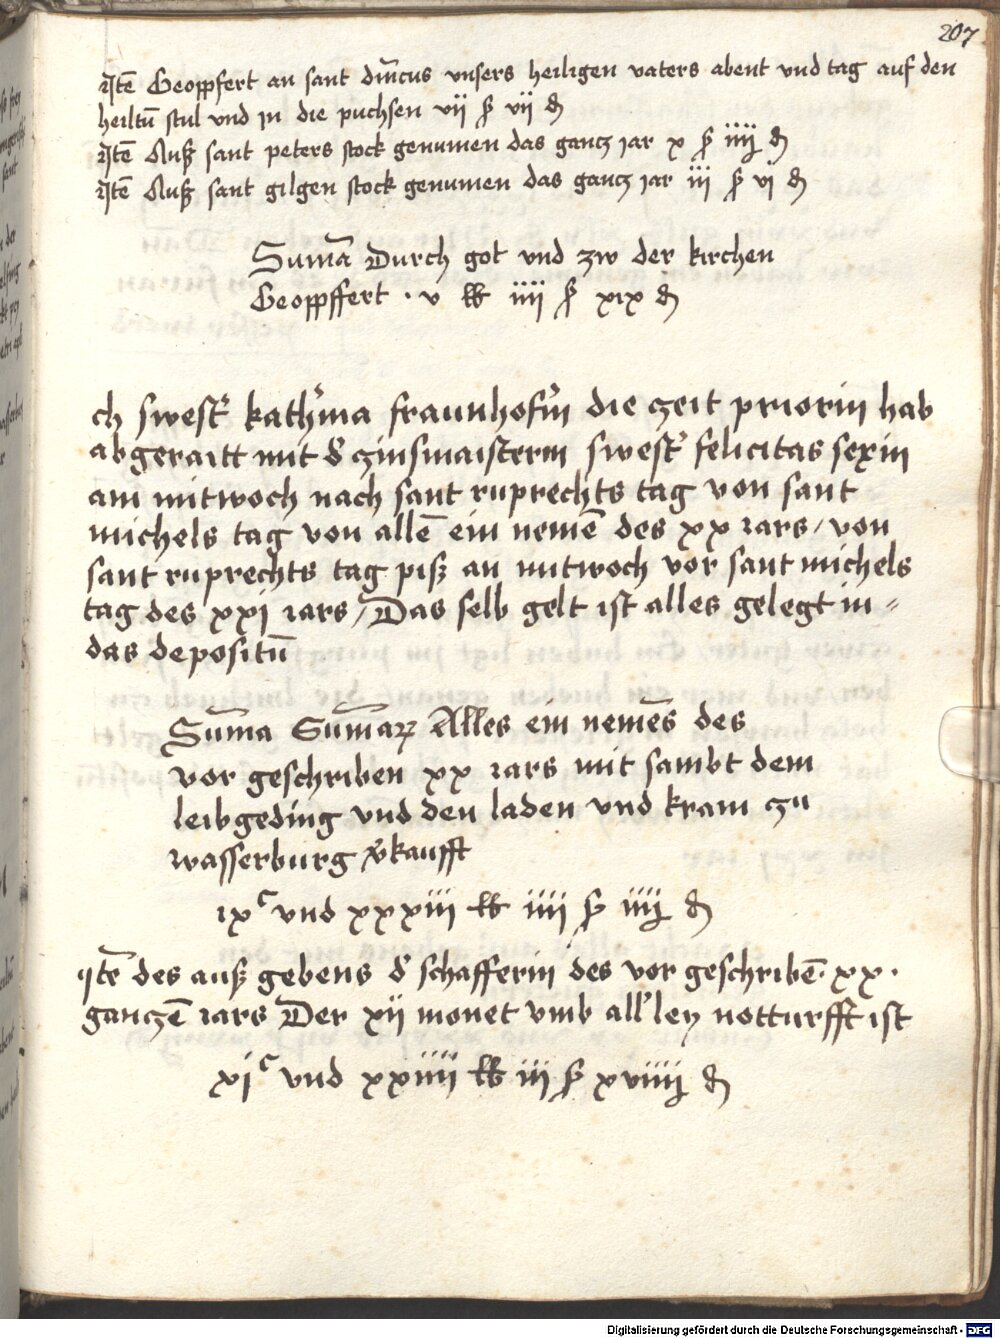 207
Itē Geopfert an sant dm̄icus unsers heiligen vaters abent vnd tag auf den
heiltū stul vnd in die puchsen vij ꝭ vij ₰
Itē Auß sant peters stock genumen das gancz jar x ꝭ iiij ₰
Itē Auß sant gilgen stock genumen das gancz jar iij ꝭ vj ₰
Sum̄a Durch got vnd zw der kirchen
Geopffert · v ℔ iiij ꝭ xix ₰
ch swest' kath'ina fraunhof'in die zeit priorin hab
abgeraitt mit d' zinsmaisterin swest' felicitas sexin
am mitwoch nach sant ruprechts tag von sant
michels tag von allē ein nemē des xx iars / von
sant ruprechts tag piß an mitwoch vor sant michels
tag des xxj iars / Das selb gelt ist alles gelegt in =
das depositū
Sūma Sūmaꝝ Alles ein nemēs des
vor geschriben xx iars mit sambt dem
leibgeding vnd den laden vnd kram zu
wasserburg v'kaufft
ixᶜ vnd xxxiij ℔ iiij ꝭ iiij ₰
Itē des auß gebens d' schafferin des vor geschribē · xx ·
ganczē iars Der xij monet vmb all'ley notturfft ist
xjᶜ vnd xxiiij ℔ iij ꝭ xviiij ₰
Digitalisierung gefördert durch die Deutsche Forschungsgemeinschaft - DFG